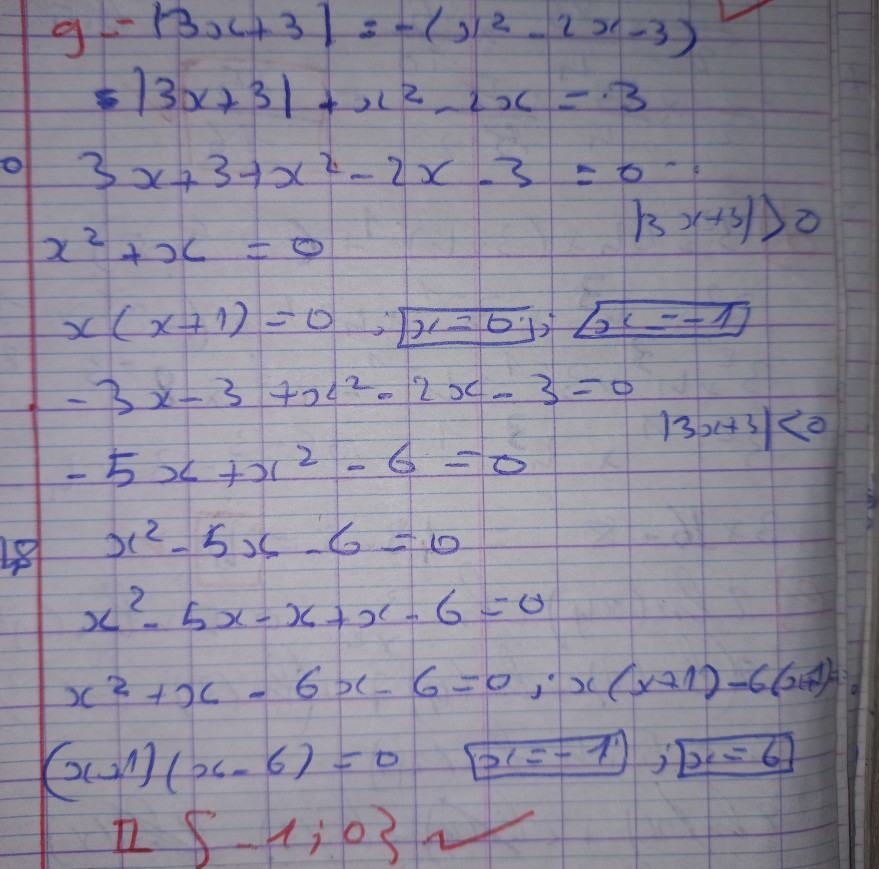 g - |3x+3| = -(x² - 2x - 3)
|3x+3| + x² - 2x = 3
3x+3+x² - 2x - 3 = 0
|3x+3|>0
x² + x = 0
x(x+1) = 0 ; x=0 ; x=-1
-3x-3+x² - 2x - 3 = 0
|3x+3|<0
-5x+x² - 6 = 0
x² - 5x - 6 = 0
x² - 5x - x+x - 6 = 0
x² + x - 6x - 6 = 0 ; x(x+1) - 6(x+1)=
(x+1)(x-6) = 0 x=-1 ; x=6
{-1;0}